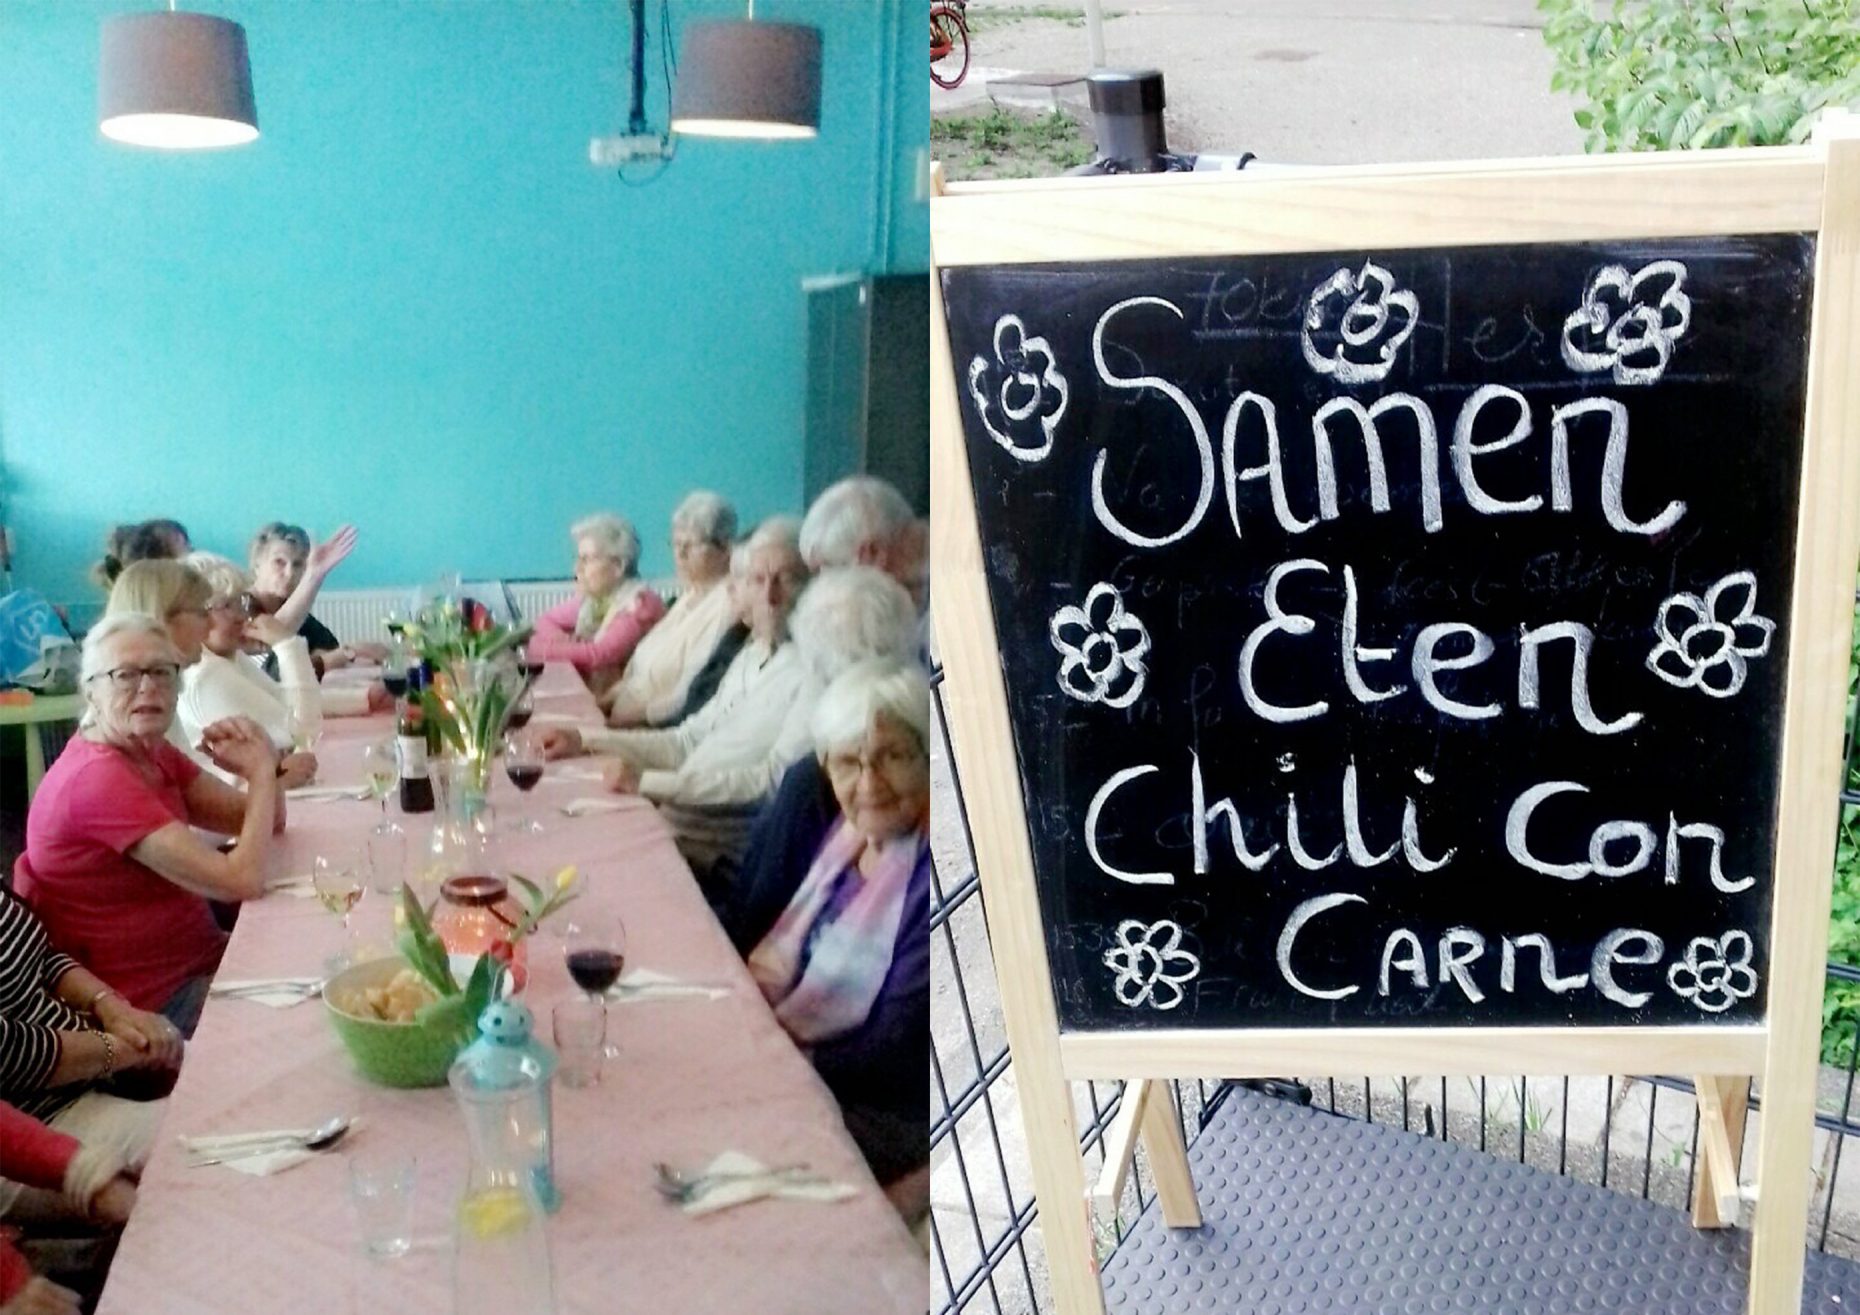 Samen
Eten
Chili Con
Carne